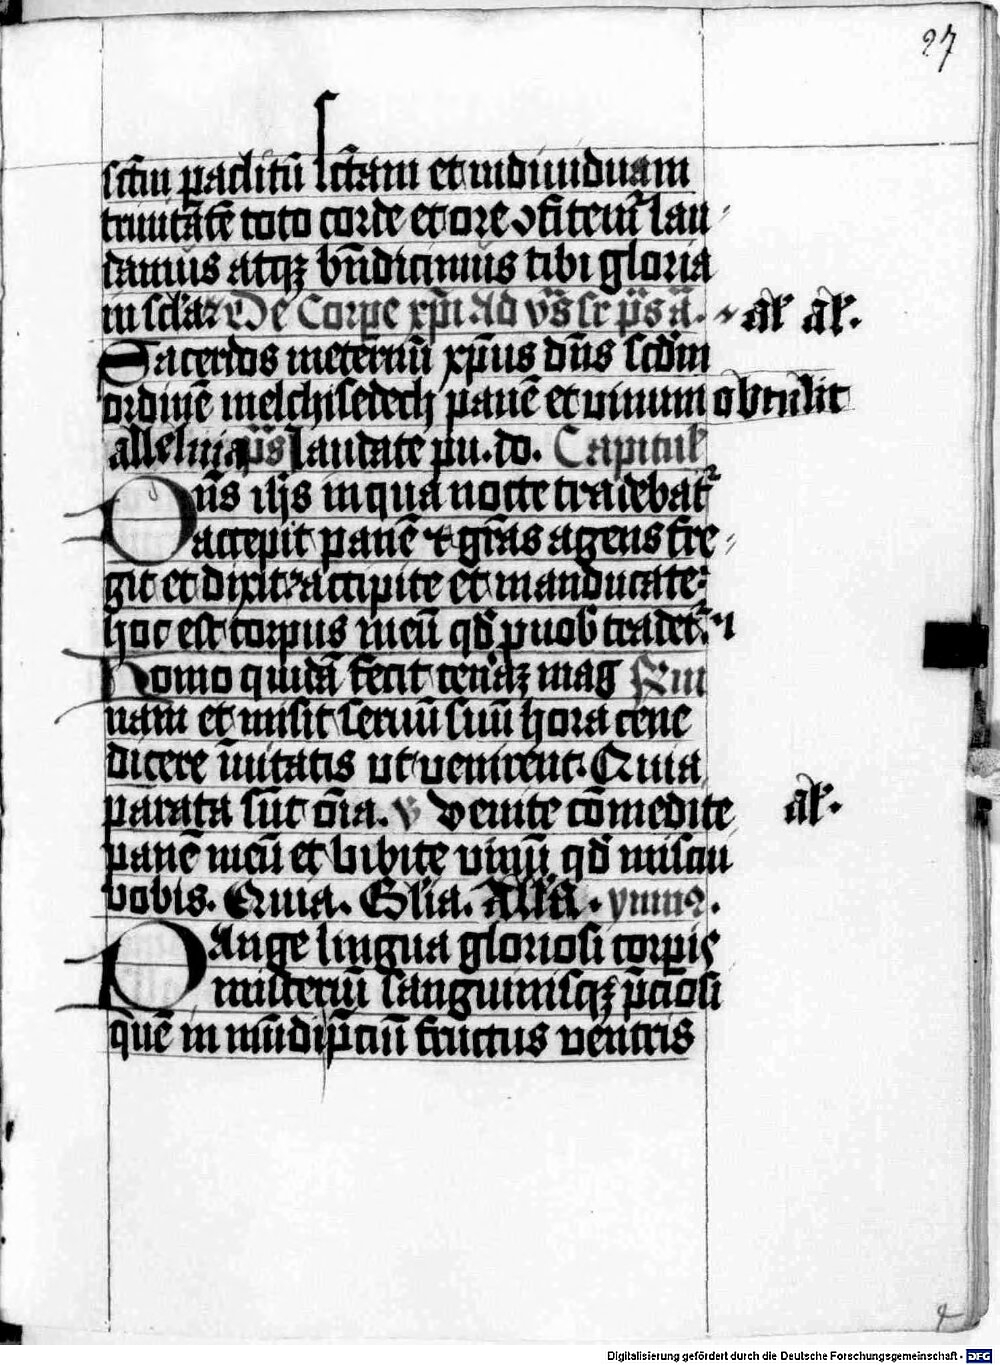 27
sctm paclitū sctam et indiuiduam
trinitatē toto corde et ore ꝯfitemr lau
damus atqꝫ bn̄dicimus tibi gloria
in scla: De Corpe xp̄i Ad vs̄ sr ps̄ a. al͛ al͛.
Sacerdos ineternū xp̄us dn̄s scdm
ordinē melchisedech panē et uinum obtulit
alleluia ps̄ laudate pu. do. Capitul
Dn̄s ihs in qua nocte tradebat͛
accepit panē ⁊ gr̄as agens fre
git et dixit: accipite et manducate:
hoc est corpus meū qd̄ p uob̄ tradet͛.
Homo quidā fecit cenā mag R͛m
nam et misit seruū suū hora cene
dicere īuitatis ut uenirent. Quia
parata sūt oīa. v̄ Venite cōmedite al͛.
panē meū et bibite uinū qd̄ miscui
vobis. Quia. Glia. All̄a. ymnꝰ.
PAnge lingua gloriosi corpis
misteriū sanguinisqꝫ p̄ciosi
quē in mūdi p̄ciū fructus uentris
Digitalisierung gefördert durch die Deutsche Forschungsgemeinschaft - DFG